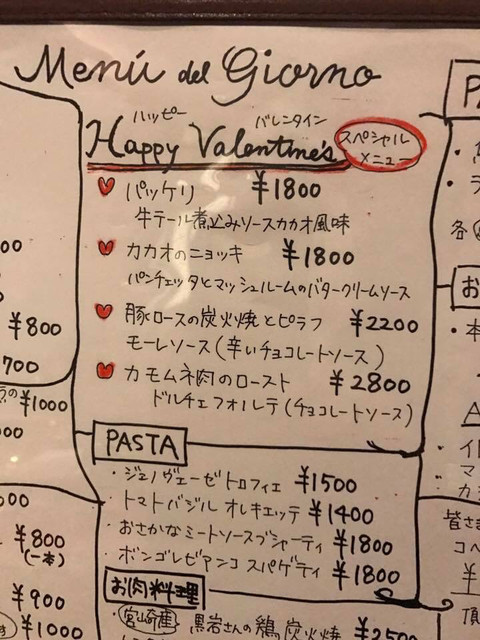 Menú del Giorno
ハッピー バレンタイン
Happy Valentine's スペシャル メニュー
パッケリ ¥1800
牛テール煮込みソースカカオ風味
カカオのニョッキ ¥1800
パンチェッタとマッシュルームのバタークリームソース
豚ロースの炭火焼とピラフ ¥2200
モーレソース(辛いチョコレートソース)
カモムネ肉のロースト ¥2800
ドルチェフォルテ(チョコレートソース)
PASTA
・ジェノヴェーゼトロフィエ ¥1500
・トマトバジル オレキエッテ ¥1400
・おさかなミートソースブシャーティ ¥1800
・ボンゴレビアンコ スパゲティ ¥1800
お肉料理
・宮崎産 黒岩さんの鶏炭火焼 ¥2500
00
¥800
700
の ¥1000
000
000
¥800
(一本)
¥900
¥1000
PA
各
お
・本
A
・イ
マ
カ
皆さま
コペ
¥
頂